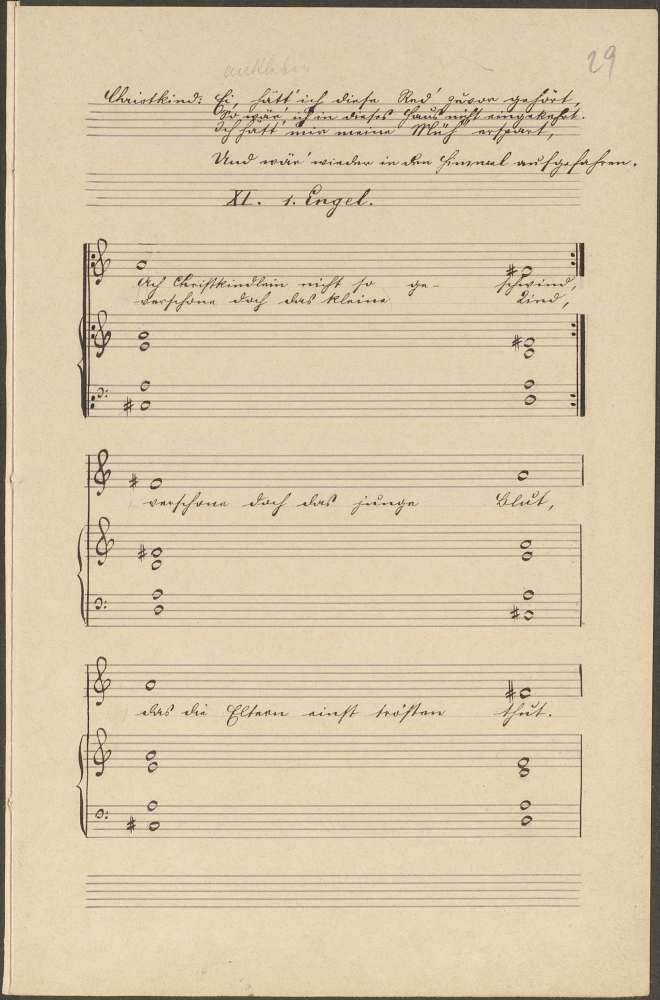 29
Christkind: Ei, hätt' ich diese Red' zuvor gehört,
So wär' ich in dieses Haus nicht eingekehrt.
Ich hätt' mir meine Müh' erspart,
Und wär' wieder in den Himmel aufgefahren.
XI. 1. Engel.
Ach Christkindlein nicht so ge- schwind,
verschone doch das kleine Kind,
verschone doch das junge Blut,
das die Eltern einst trösten thut.